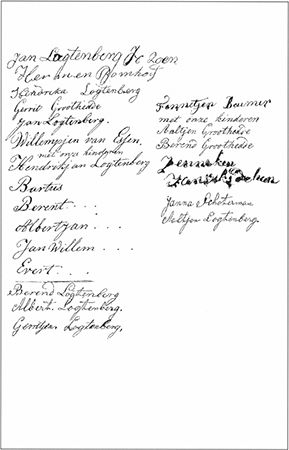 Jan Logtenberg Jc Zoen
Hermen Bomhof
Hendrika Logtenberg
Gerrit Groothedde
Jan Logtenberg.
Willempjen van Essen.
met onze kinderen
Hendrikjan Logtenberg
Bartus
Berent . . .
Albertjan . . .
Jan Willem . . .
Evert . . .
Berend Logtenberg
Albert. Logtenberg.
Gerritjen Logtenberg.
Fennetjen Beumer
met onze kinderen
Aaltjen Groothedde
Berend Groothedde
Janna Schoterman
Aaltjen Logtenberg.